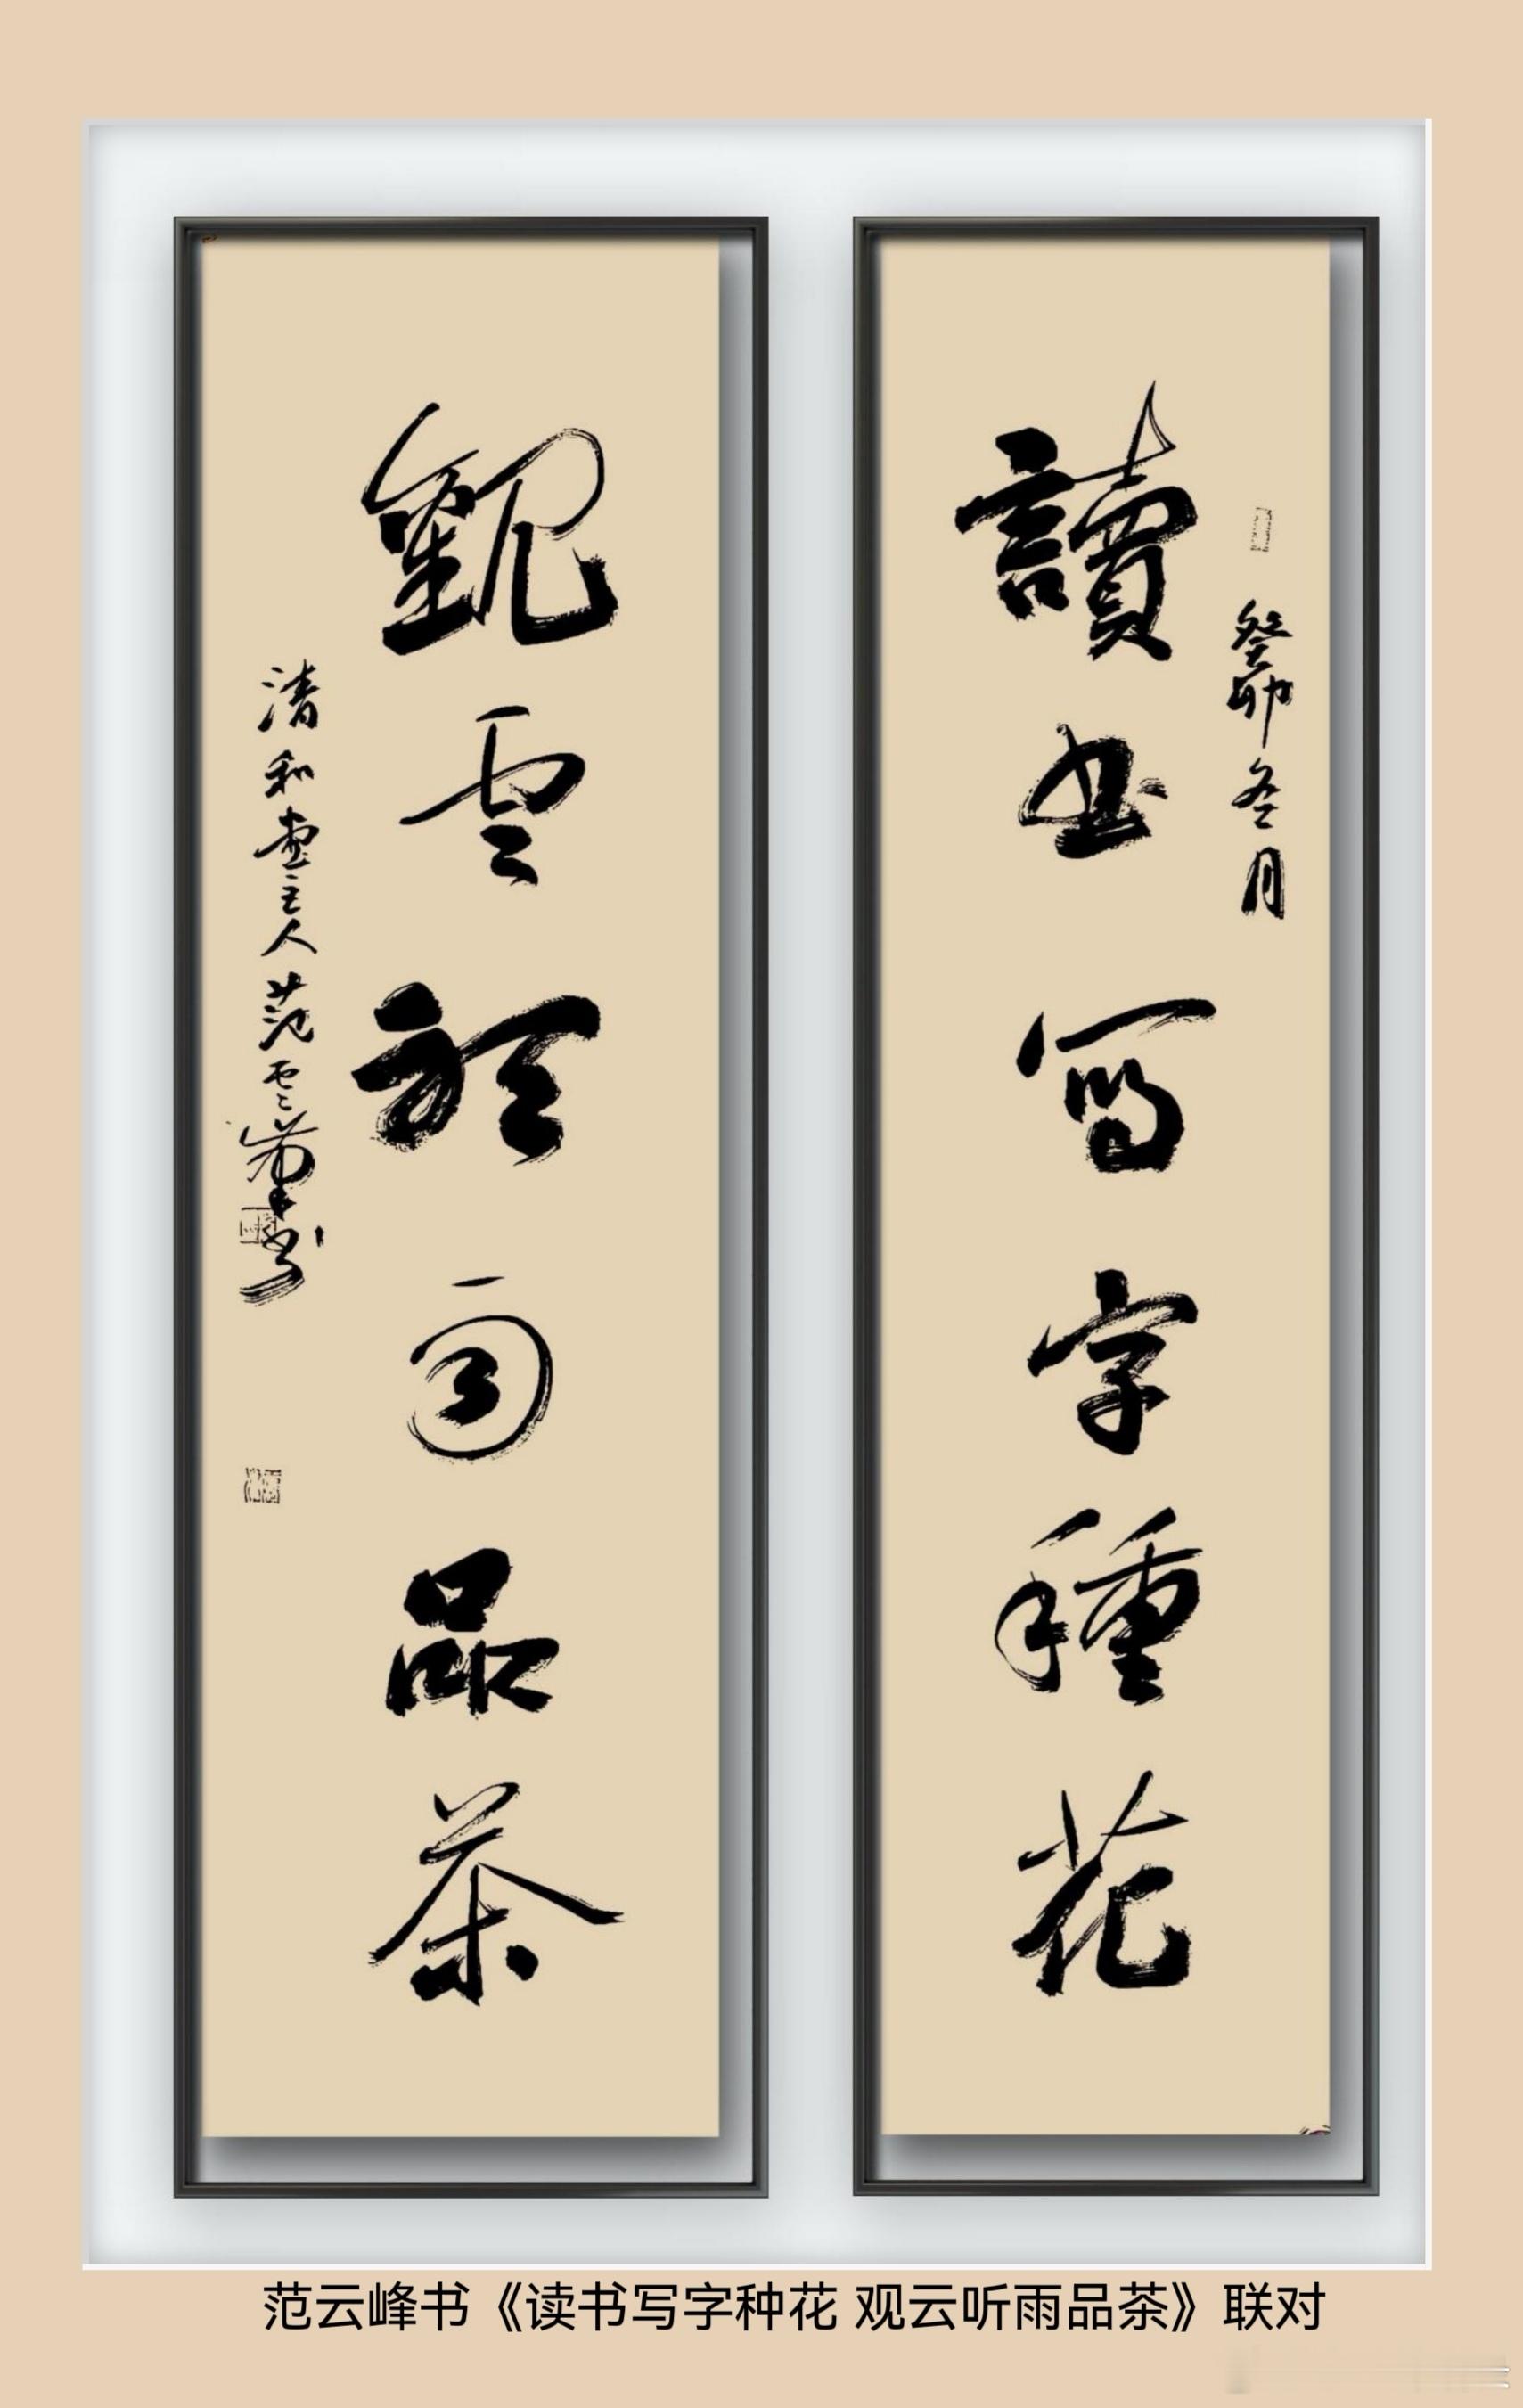 癸卯冬月
讀书写字種花
觀雲聽雨品茶
清和堂主人范云峰书
范云峰书《读书写字种花 观云听雨品茶》联对